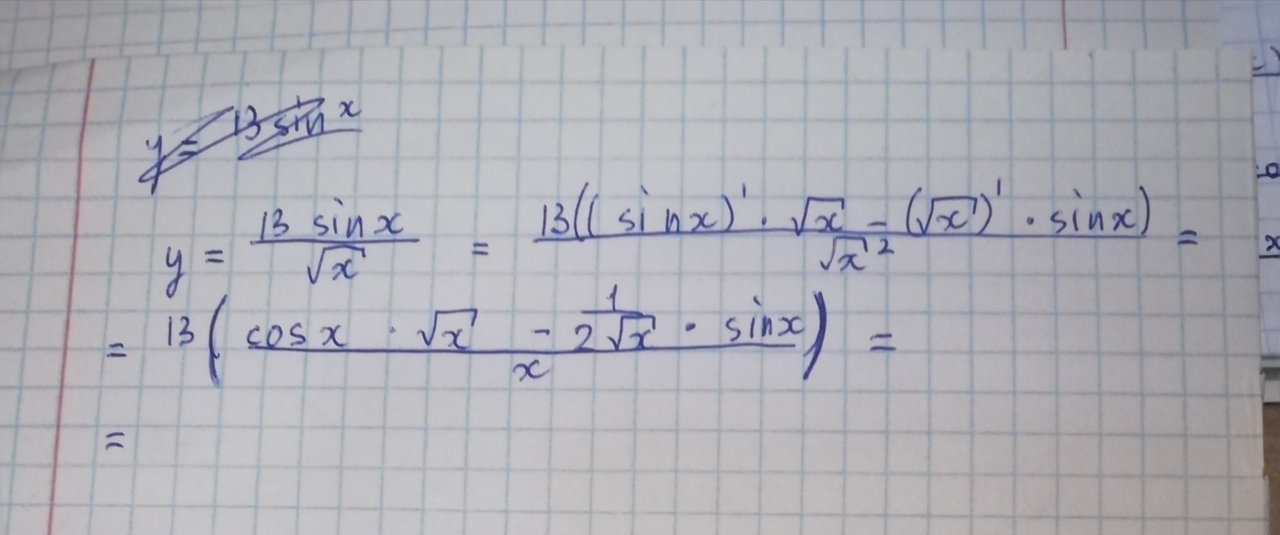 y = 13 sin x
y = 13 sinx / √x = 13((sinx)' · √x - (√x)' · sinx) / √x² =
= 13( (cosx · √x - 1/(2√x) · sinx) / x ) =
=